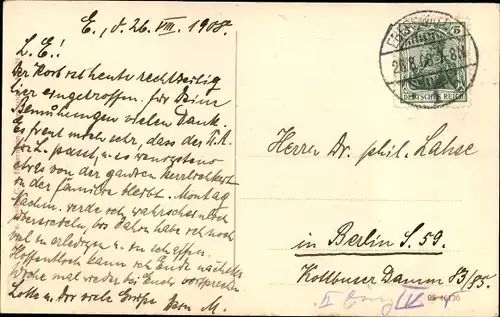 E., d. 26. VIII. 1908.
L. E.!
Der Korb ist heute rechtzeitig
hier eingetroffen. Für Deine
Bemühungen vielen Dank.
Es freut mich sehr, dass der
für L. passt, u. es wenigstens
etwas von der ganzen Herrlichkeit
in der Familie bleibt. Montag
Nachm. werde ich wahrscheinlich
übersiedeln, bis dahin habe ich noch
viel zu erledigen u. zu schaffen.
Hoffentlich kann ich Ende nächster
Woche mal wieder bei Euch vorsprechen.
Lotte u. Dir viele Grüße Dein M.
5
26.8.08
DEUTSCHES REICH
Herrn Dr. phil. Lahse
in Berlin S. 59.
Kottbuser Damm 83/85.
II
IV